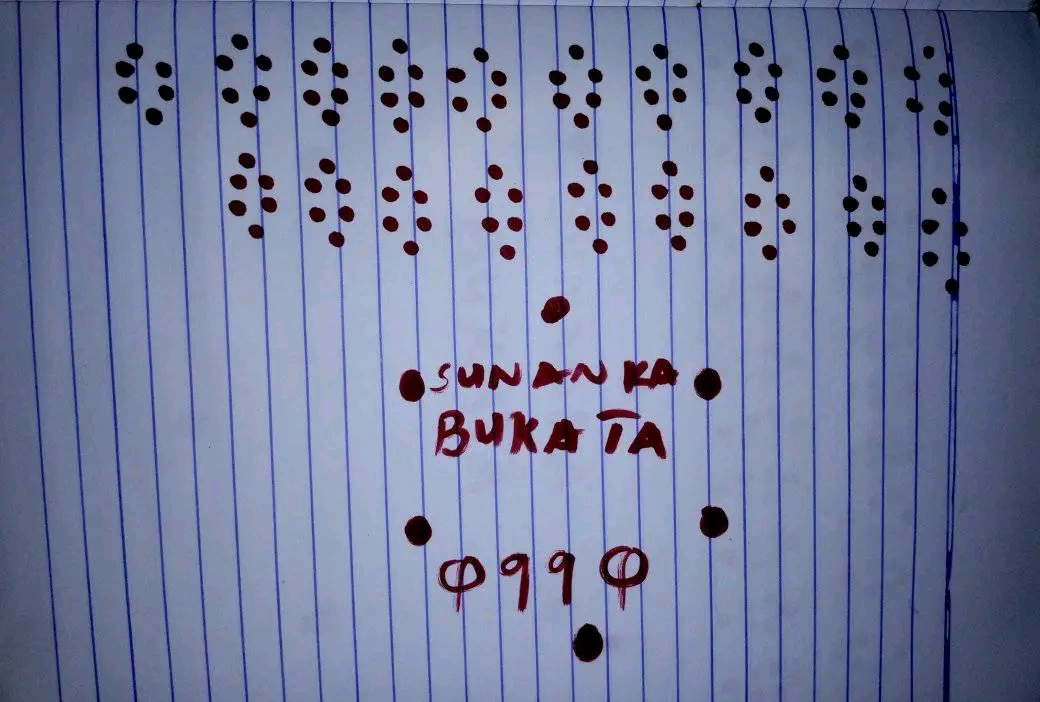 SUNAN KA
BUKATA
φ99φ